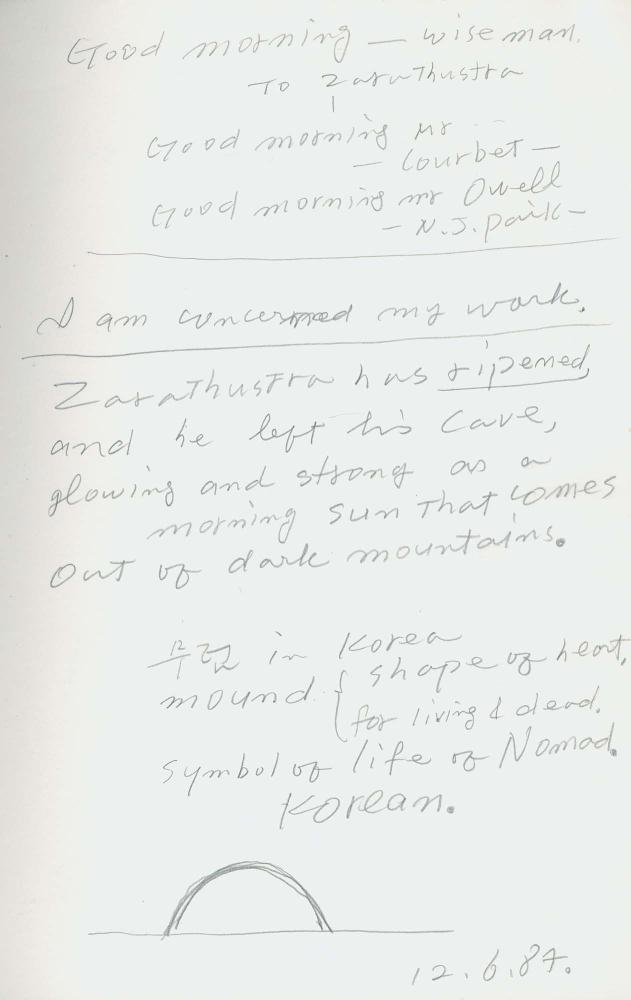 Good morning — wise man.
To Zarathustra
Good morning Mr
— Courbet —
Good morning mr Owell
— N.J. paik —
I am concerned my work.
Zarathustra has ripened,
and he left his cave,
glowing and strong as a
morning sun that comes
out of dark mountains.
무덤 in Korea
mound { shape of heart,
for living & dead.
symbol of life of Nomad.
Korean.
12.6.84.